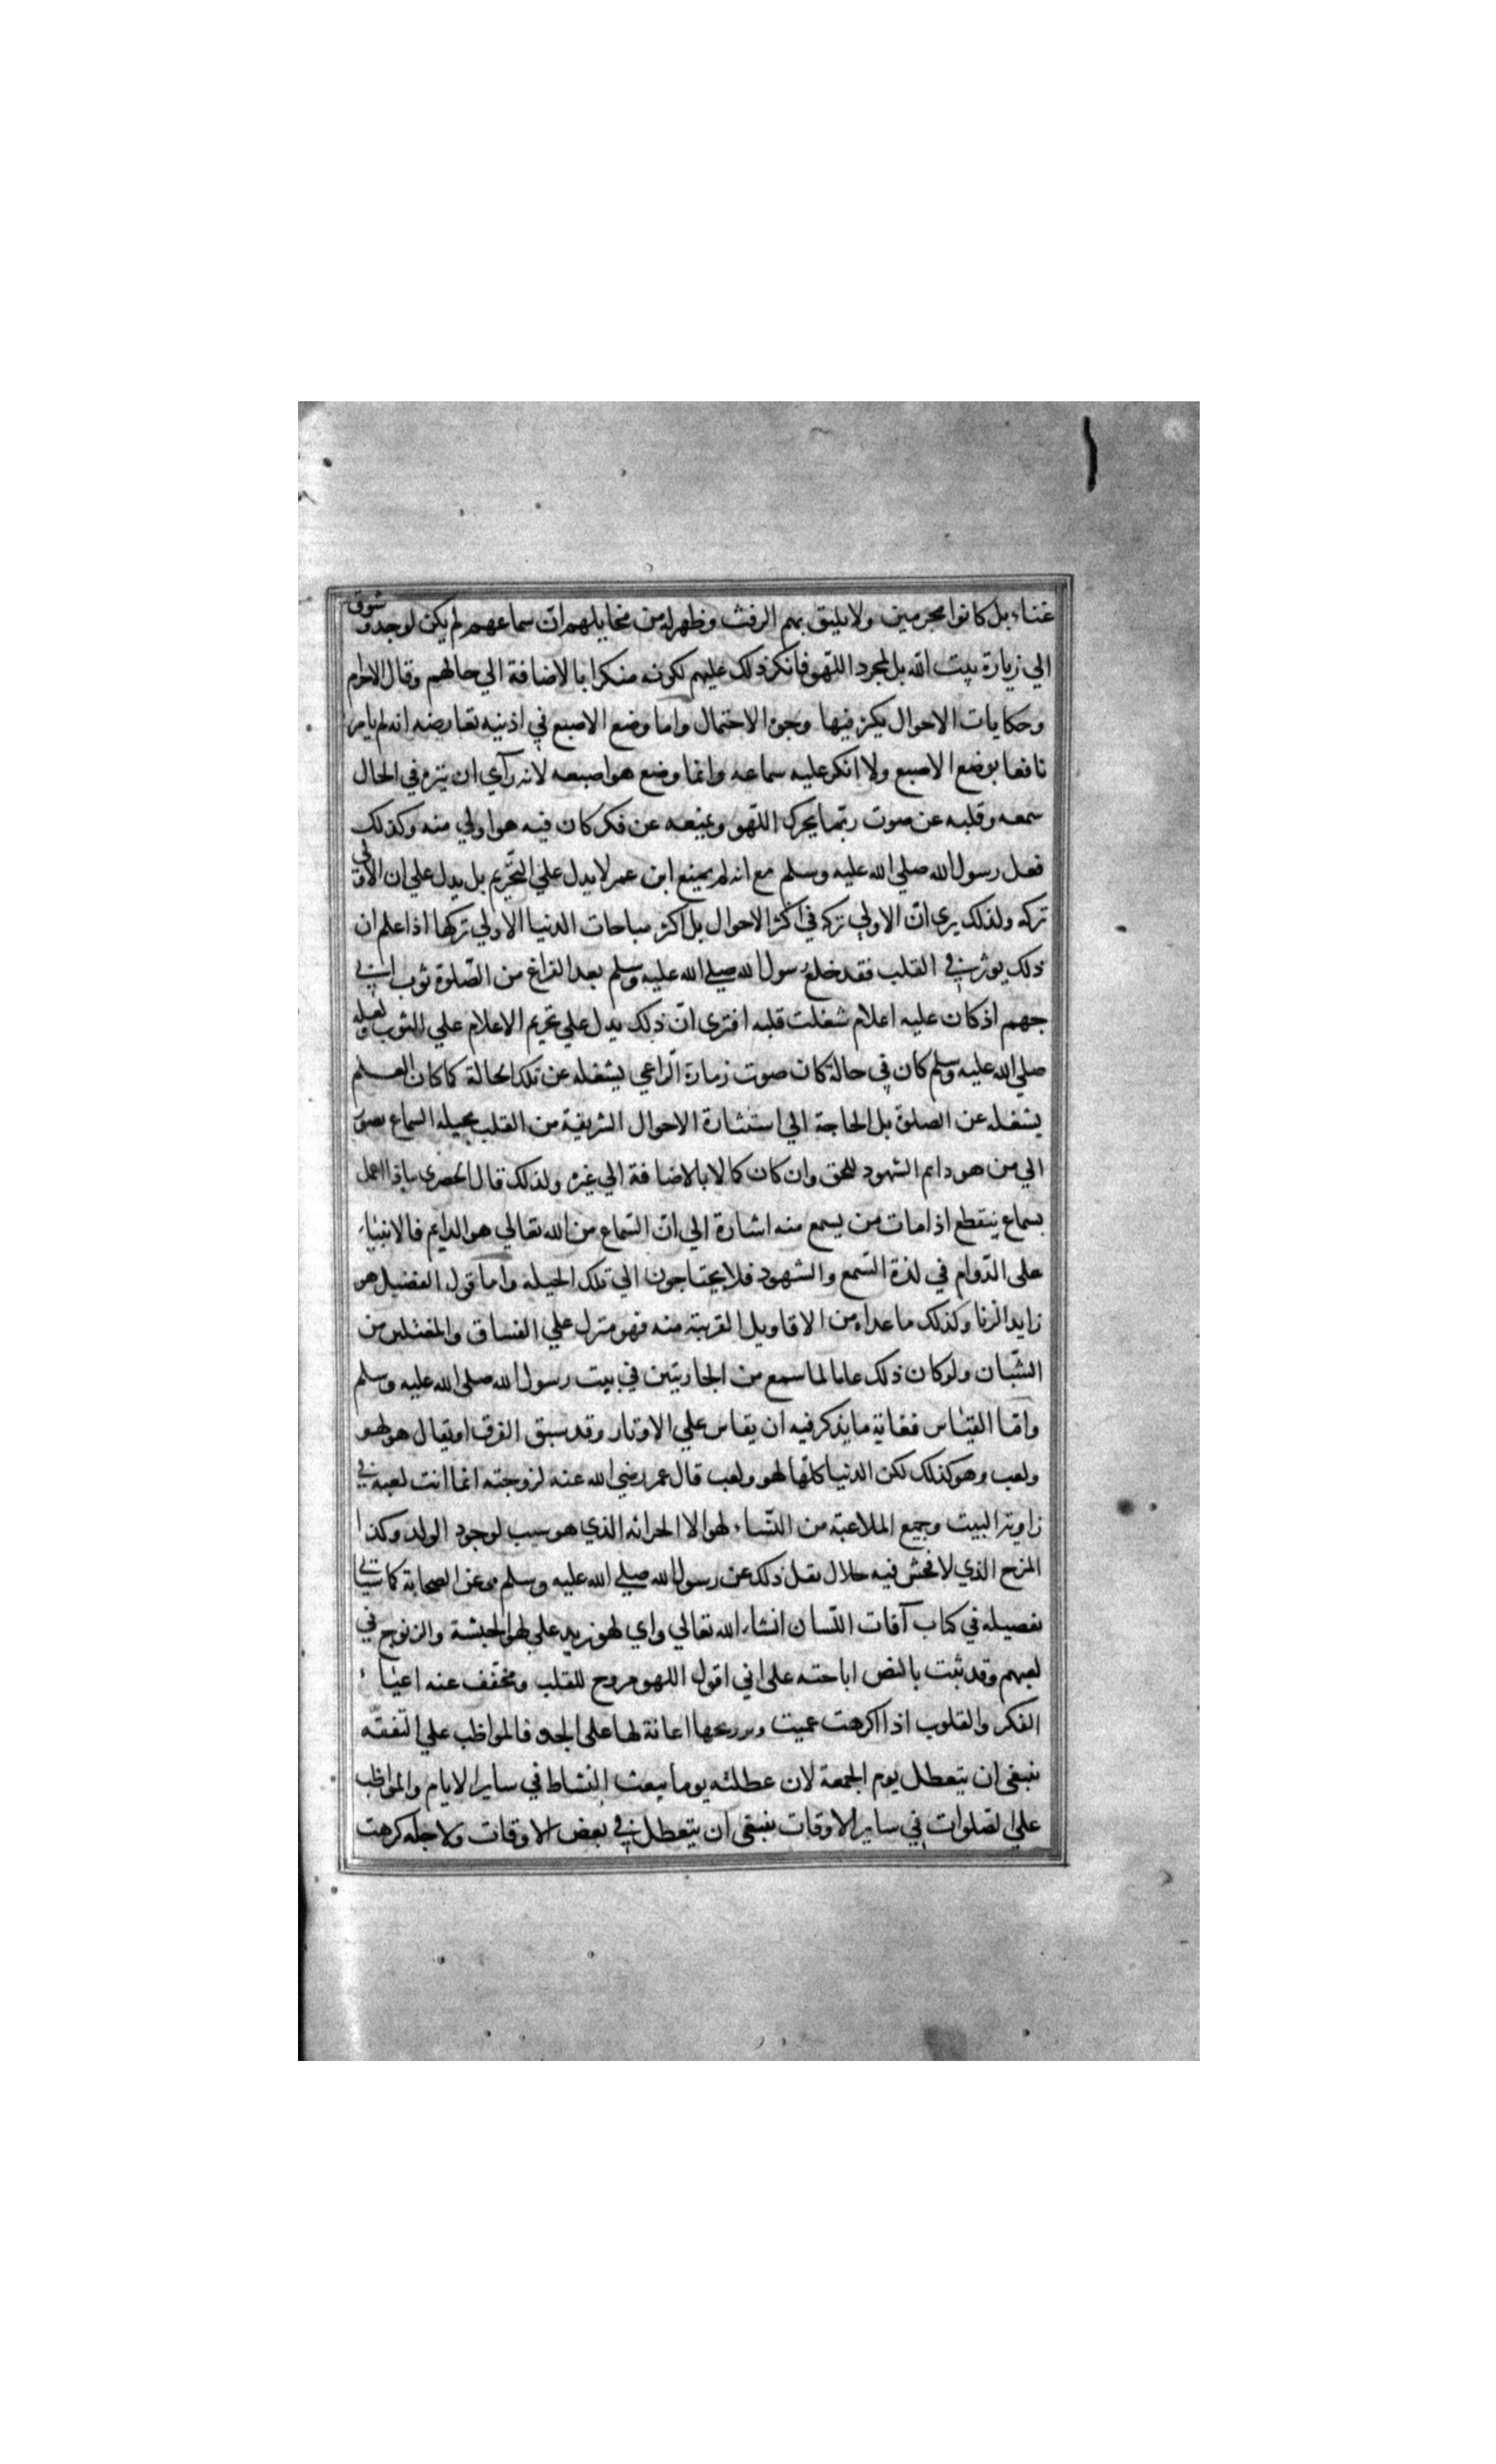 غناء بل كانوا محرمين ولا يليق بهم الرفث وظهر له من مخايلهم ان سماعهم لم يكن لوجد وشوق
الي زيارة بيت الله بل لمجرد اللهو فانكر ذلك عليهم لكونه منكرا بالاضافة الي حالهم وقال الاحرام
وحكايات الاحوال يكثر فيها وجوه الاحتمال واما وضع الاصبع في اذنيه تعارضه انه لم يامر
نافعا بوضع الاصبع ولا انكر عليه سماعه وانما وضع هو اصبعه لانه رآي ان ينزه في الحال
سمعه وقلبه عن صوت ربما يحرك اللهو ويمنعه عن فكر كان فيه هو اولي منه وكذلك
فعل رسول الله صلي الله عليه وسلم مع انه لم يمنع ابن عمر لا يدل علي التحريم بل يدل علي ان الاولي
تركه ولذلك يري ان الاولي تركه في اكثر الاحوال بل اكثر مباحات الدنيا الاولي تركها اذا علم ان
ذلك يوثر في القلب فقد خلع رسول الله صلي الله عليه وسلم بعد الفراغ من الصلوة ثوب ابي
جهم اذ كان عليه اعلام شغلت قلبه افتري ان ذلك يدل علي تحريم الاعلام علي الثوب ولعله
صلي الله عليه وسلم كان في حالة كان صوت زمارة الراعي يشغله عن تلك الحالة كما كان العلم
يشغله عن الصلوة بل الحاجة الي استثارة الاحوال الشريفة من القلب بحيلة السماع قصور
الي من هو دايم الشهود للحق وان كان كمالا بالاضافة الي غيره ولذلك قال الحصري ماذا اعمل
بسماع ينقطع اذا مات من يسمع منه اشارة الي ان السماع من الله تعالي هو الدايم فالانبياء
علي الدوام في لذة السمع والشهود فلا يحتاجون الي تلك الحيلة واما قول الفضيل هو
زايد الزنا وكذلك ما عداه من الاقاويل القريبة منه فهو منزل علي الفساق والمغتلمين من
الشبان ولو كان ذلك عاما لما سمع من الجاريتين في بيت رسول الله صلي الله عليه وسلم
واما القياس فغاية ما يذكر فيه ان يقاس علي الاوتار وقد سبق الفرق او يقال هو لهو
ولعب وهو كذلك لكن الدنيا كلها لهو ولعب قال عمر رضي الله عنه لزوجته انما انت لعبة في
زاوية البيت وجميع الملاعبة من النساء لهو الا الحراثه الذي هو سبب لوجود الولد وكذا
المزح الذي لا فحش فيه حلال نقل ذلك عن رسول الله صلي الله عليه وسلم وعن الصحابة كما سياتي
تفصيله في كتاب آفات اللسان انشاء الله تعالي واي لهو يزيد علي لهو الحبشة والزنوج في
لعبهم وقد ثبت بالنص اباحته علي اني اقول اللهو مروح للقلب ومخفف عنه اعياء
الفكر والقلوب اذا اكرهت عميت وترويحها اعانة لها علي الجد فالمواظب علي التفقه
ينبغي ان يتعطل يوم الجمعة لان عطلته يوما يبعث النشاط في ساير الايام والمواظب
علي الصلوات في ساير الاوقات ينبغي ان يتعطل في بعض الاوقات ولاجله كرهت